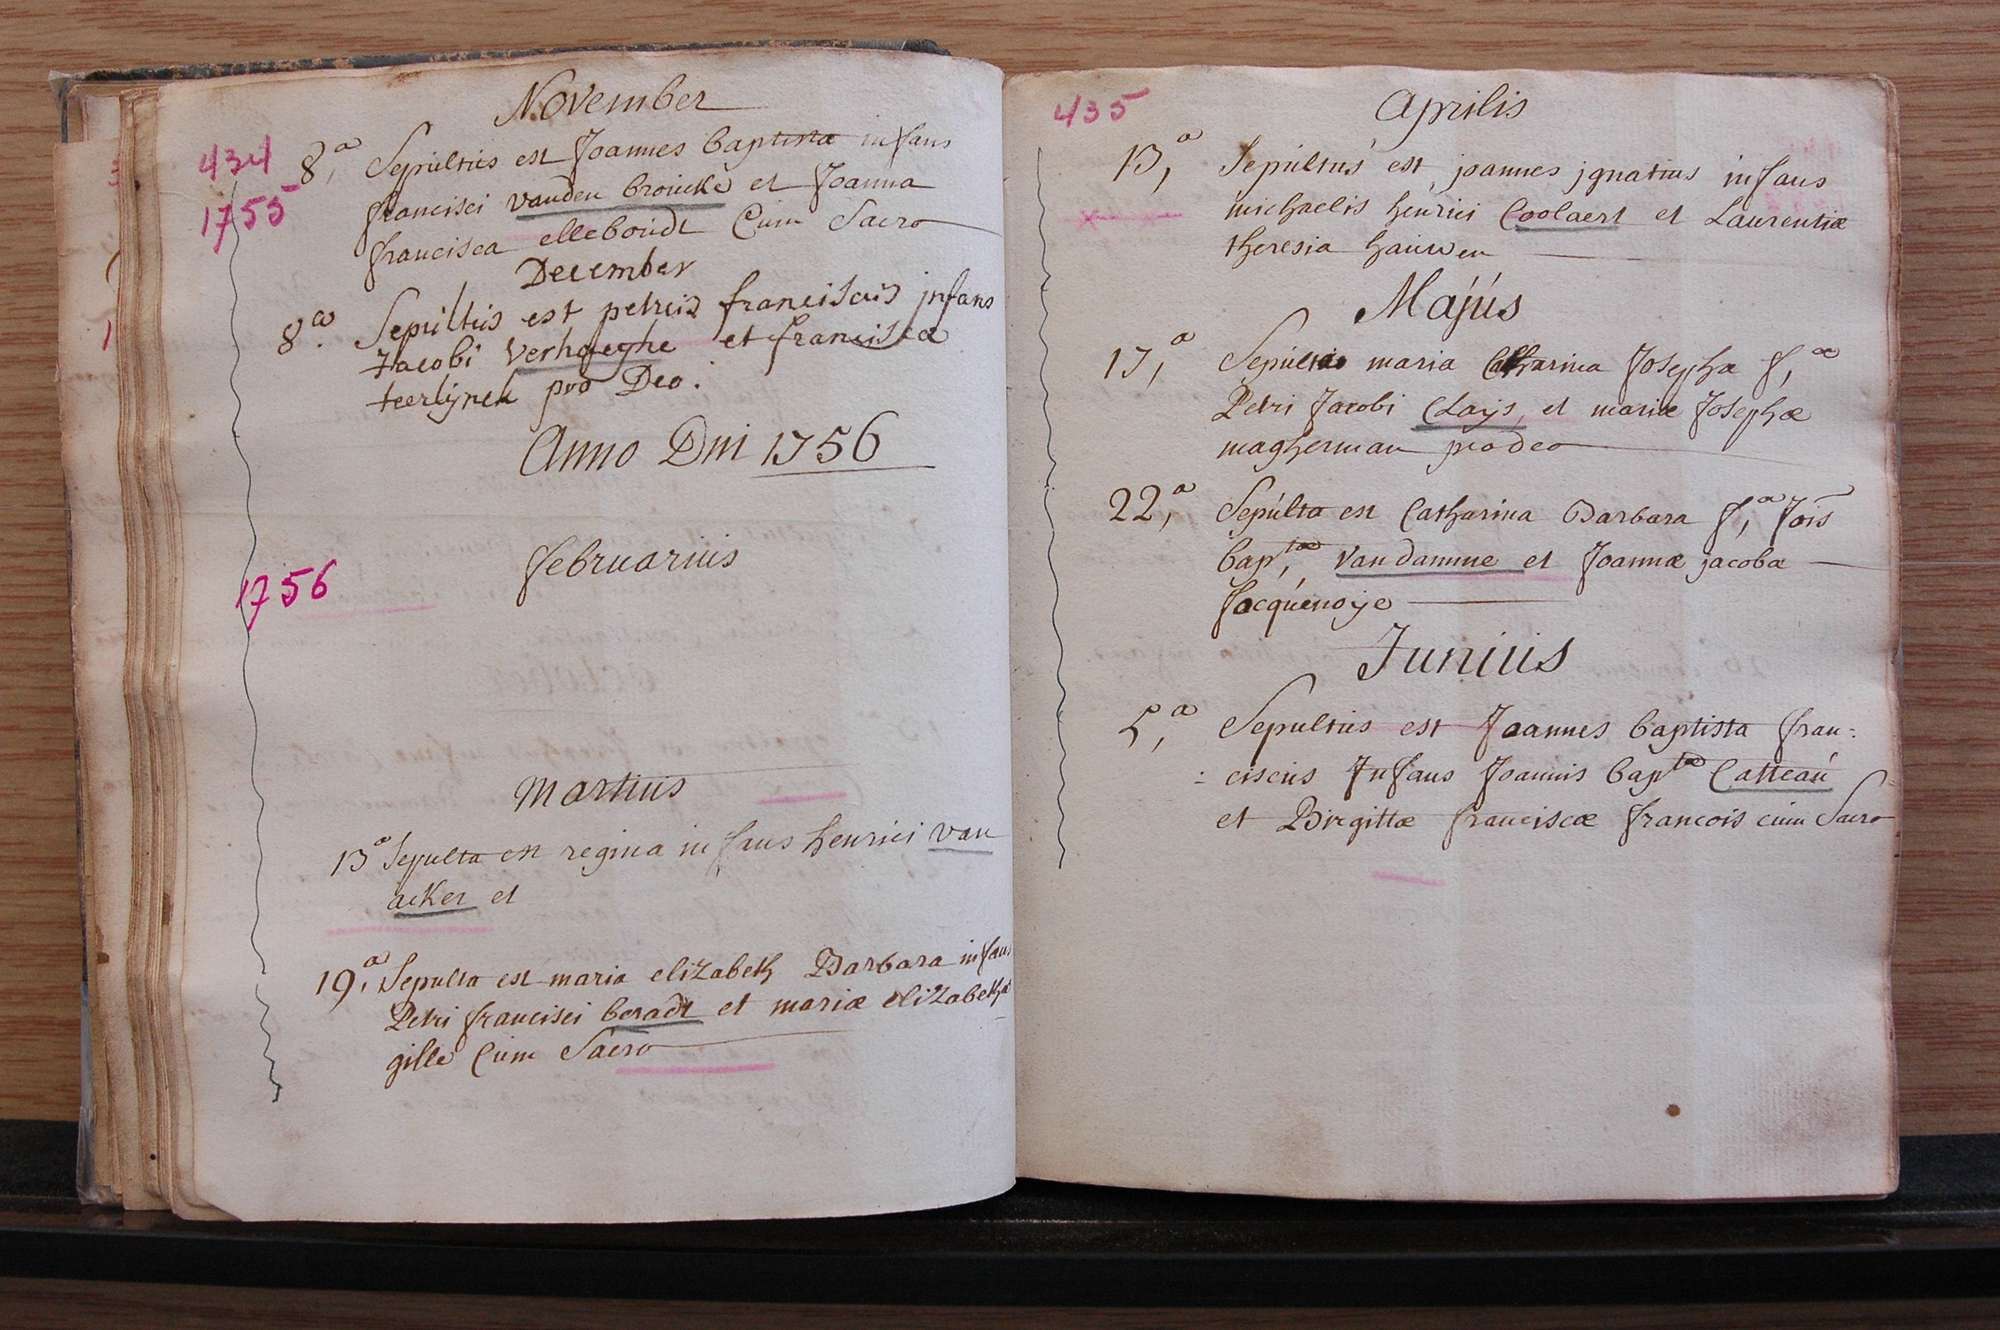 November
434
1755
8,a Sepultus est Joannes baptista infans
francisci vanden broucke et Joanna
francisca elleboudt Cum Sacro
December
8.a Sepultus est petrus franciscus jnfans
Jacobi Verhaeghe et francisca
teerlynck pro Deo.
Anno Dni 1756
februarius
1756
Martius
13a Sepulta est regina infans henrici van
acker et
19,a Sepulta est maria elizabeth Barbara infans
Petri francisci beradt et mariæ elizabethæ
gille Cum Sacro
435
Aprilis
13,a Sepultus est joannes jgnatius infans
michaelis henrici Coolaert et Laurentiæ
theresia hauwen
Majus
17,a Sepulta maria Catharina Josepha f,ae
Petri Jacobi Clays, et mariæ Josephæ
magherman pro deo
22,a Sepulta est Catharina Barbara f,a Jois
bap,tae Vandamme et Joannæ jacoba
focquenoye
Junius
5,a Sepultus est Joannes baptista fran:
: ciscus Infans Joannis baptae Catteau
et Birgittæ franciscæ francois cum Sacro